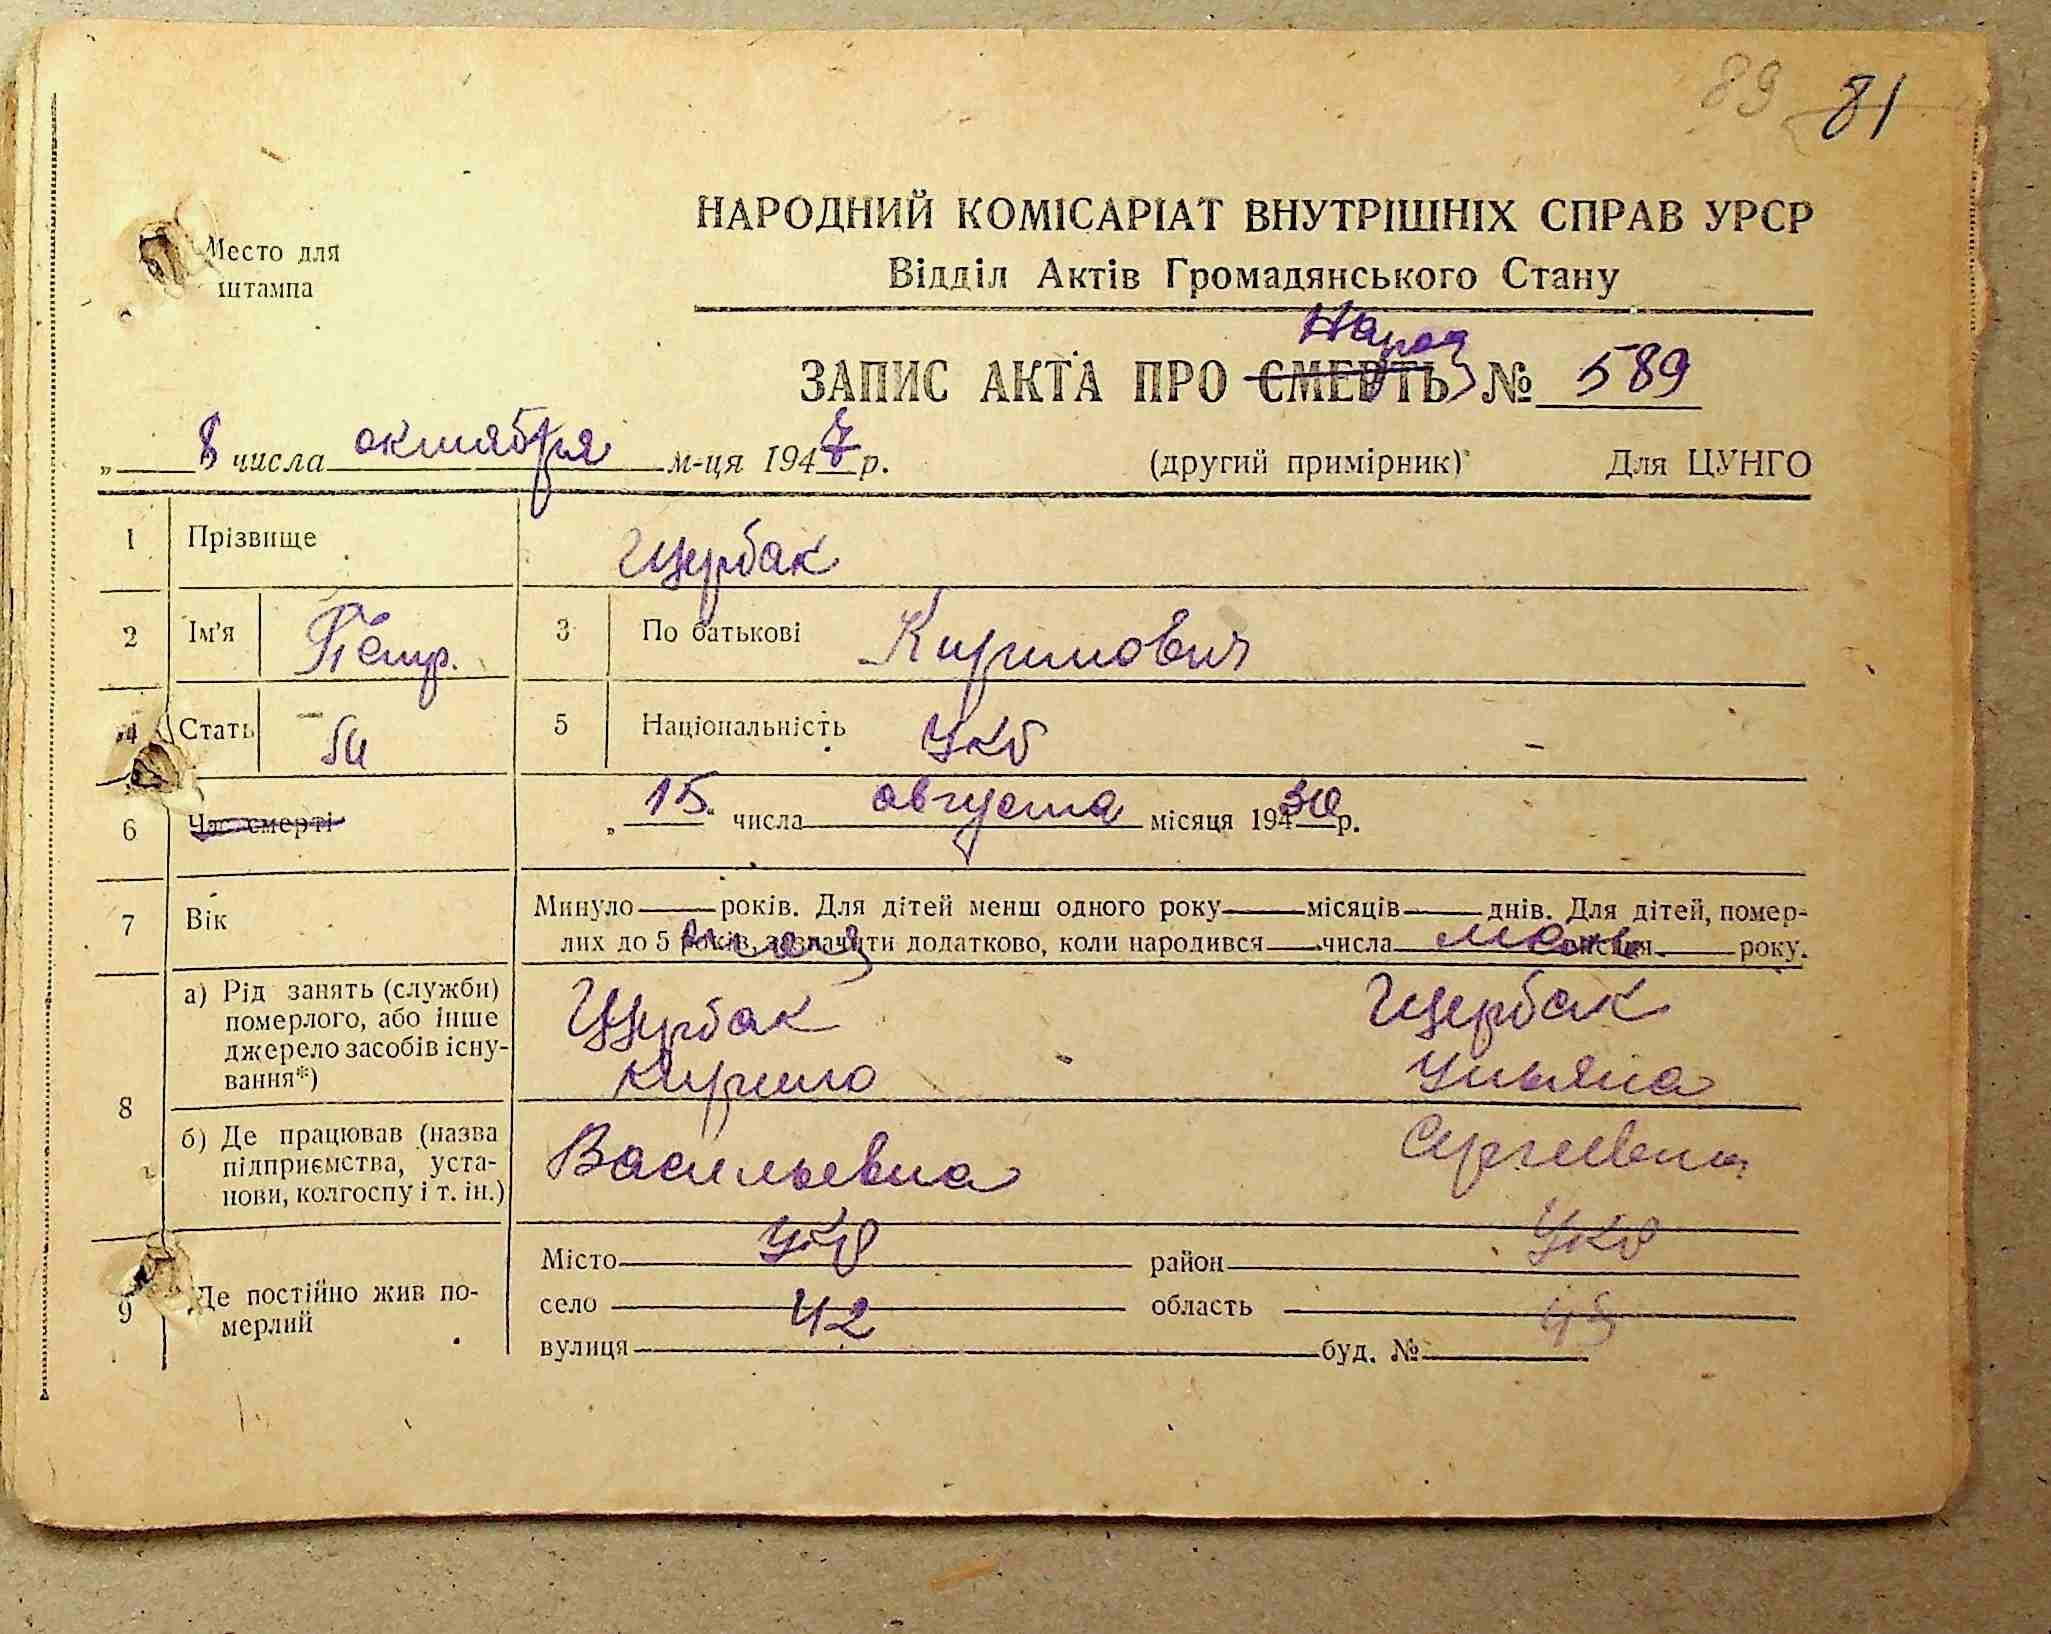 89 81
Место для
штампа
НАРОДНИЙ КОМІСАРІАТ ВНУТРІШНІХ СПРАВ УРСР
Відділ Актів Громадянського Стану
Нарож
ЗАПИС АКТА ПРО СМЕРТЬ № 589
„ 8 числа октября м-ця 1947 р. (другий примірник) Для ЦУНГО
1 Прізвище Щербак
2 Ім'я Петр. 3 По батькові Кирилович
4 Стать М 5 Національність Укр
6 Час смерті „ 15 " числа августа місяця 194 30 р.
7 Вік Минуло — років. Для дітей менш одного року — місяців — днів. Для дітей, помер-
лих до 5 років, зазначити додатково, коли народився — числа мать місяця — року.
8 а) Рід занять (служби) померлого, або інше джерело засобів існу-вання*) Щербак Щербак
Кирило Ульяна
б) Де працював (назва підприємства, уста-нови, колгоспу і т. ін.) Васильевна Сергеевна
9 Де постійно жив по-мерлий
Місто Укр район Укр
село 42 область 45
вулиця буд. №